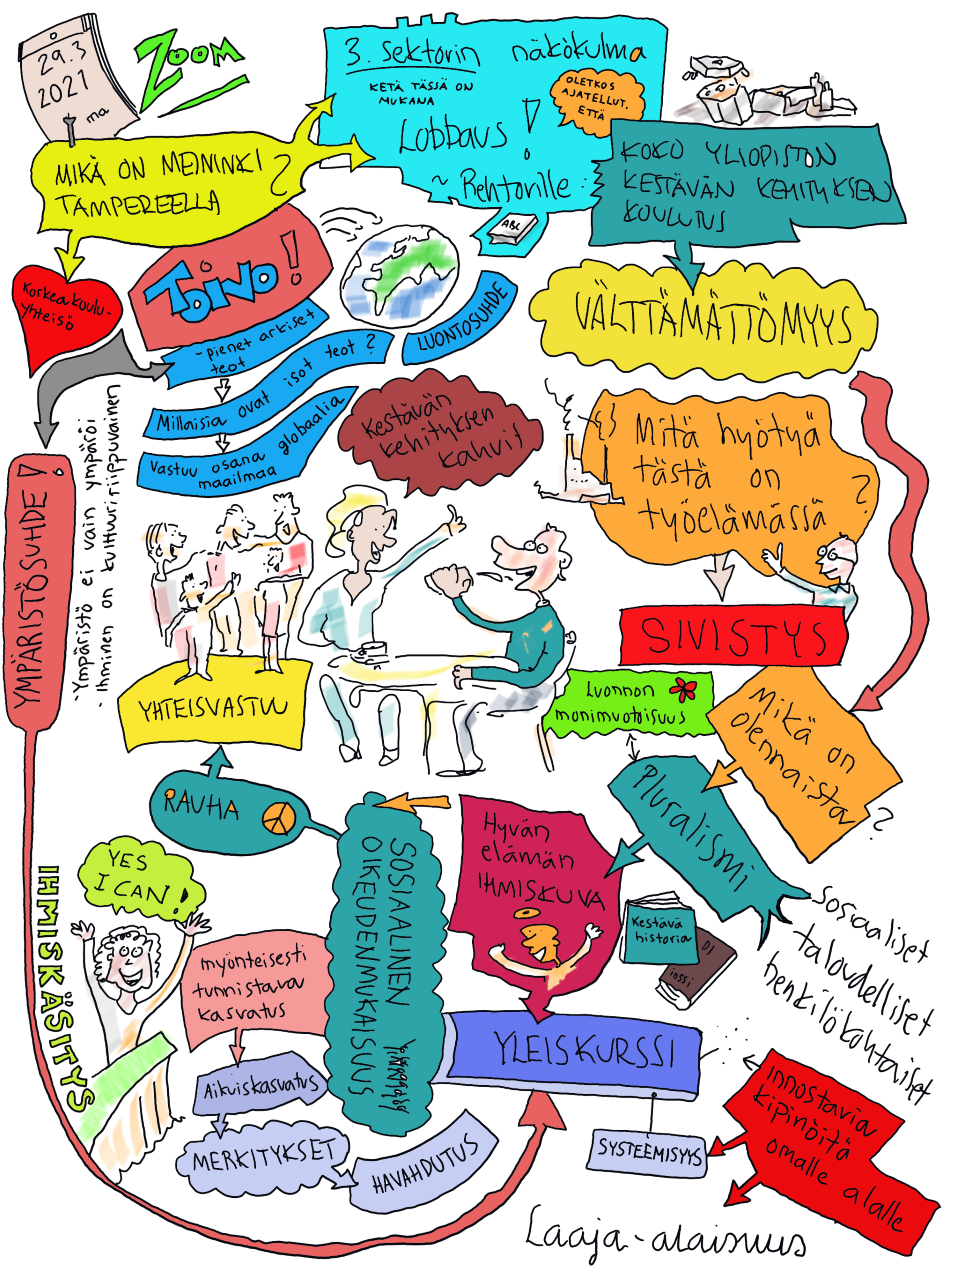 29.3
2021
ma
ZOOM
3. sektorin näkökulma
KETÄ TÄSSÄ ON
MUKANA
Lobbaus !
~ Rehtorille
OLETKOS
AJATELLUT,
ETTÄ
ABC
MIKÄ ON MEININKI
TAMPEREELLA ?
KOKO YLIOPISTON
KESTÄVÄN KEHITYKSEN
KOULUTUS
Korkeakoulu-
yhteisö
TOIVO!
- pienet arkiset
teot
Millaisia ovat isot teot ?
Vastuu osana globaalia
maailmaa
LUONTOSUHDE
VÄLTTÄMÄTTÖMYYS
Kestävän
kehityksen
kahvit
Mitä hyötyä
tästä on
työelämässä ?
YMPÄRISTÖSUHDE!
- Ympäristö ei vain ympäröi
- Ihminen on kulttuuririippuvainen
SIVISTYS
YHTEISVASTUU
Luonnon
monimuotoisuus
Mikä on
olennaista ?
RAUHA
Pluralismi
Hyvän
elämän
IHMISKUVA
SOSIAALINEN
OIKEUDENMUKAISUUS
YES
I CAN!
IHMISKÄSITYS
Kestävä
historia
DI
inssi
Sosiaaliset
taloudelliset
henkilökohtaiset
myönteisesti
tunnistava
kasvatus
YLEISKURSSI
Aikuiskasvatus
MERKITYKSET
HAVAHDUTUS
SYSTEEMISYYS
innostavia
kipinöitä
omalle alalle
Laaja-alaisuus